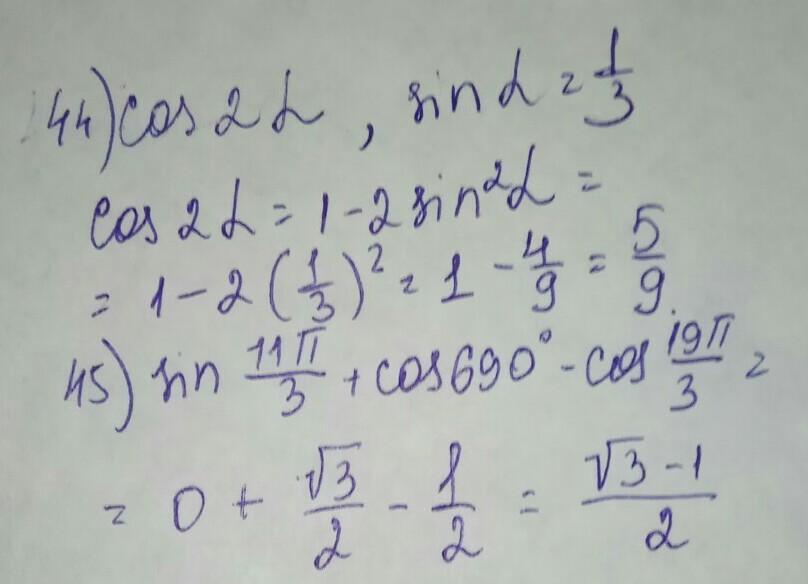 44) cos 2α, sin α = 1/3
cos 2α = 1 - 2 sin²α =
= 1 - 2 (1/3)² = 1 - 4/9 = 5/9
45) sin 11π/3 + cos 690° - cos 19π/3 =
= 0 + √3/2 - 1/2 = (√3 - 1)/2